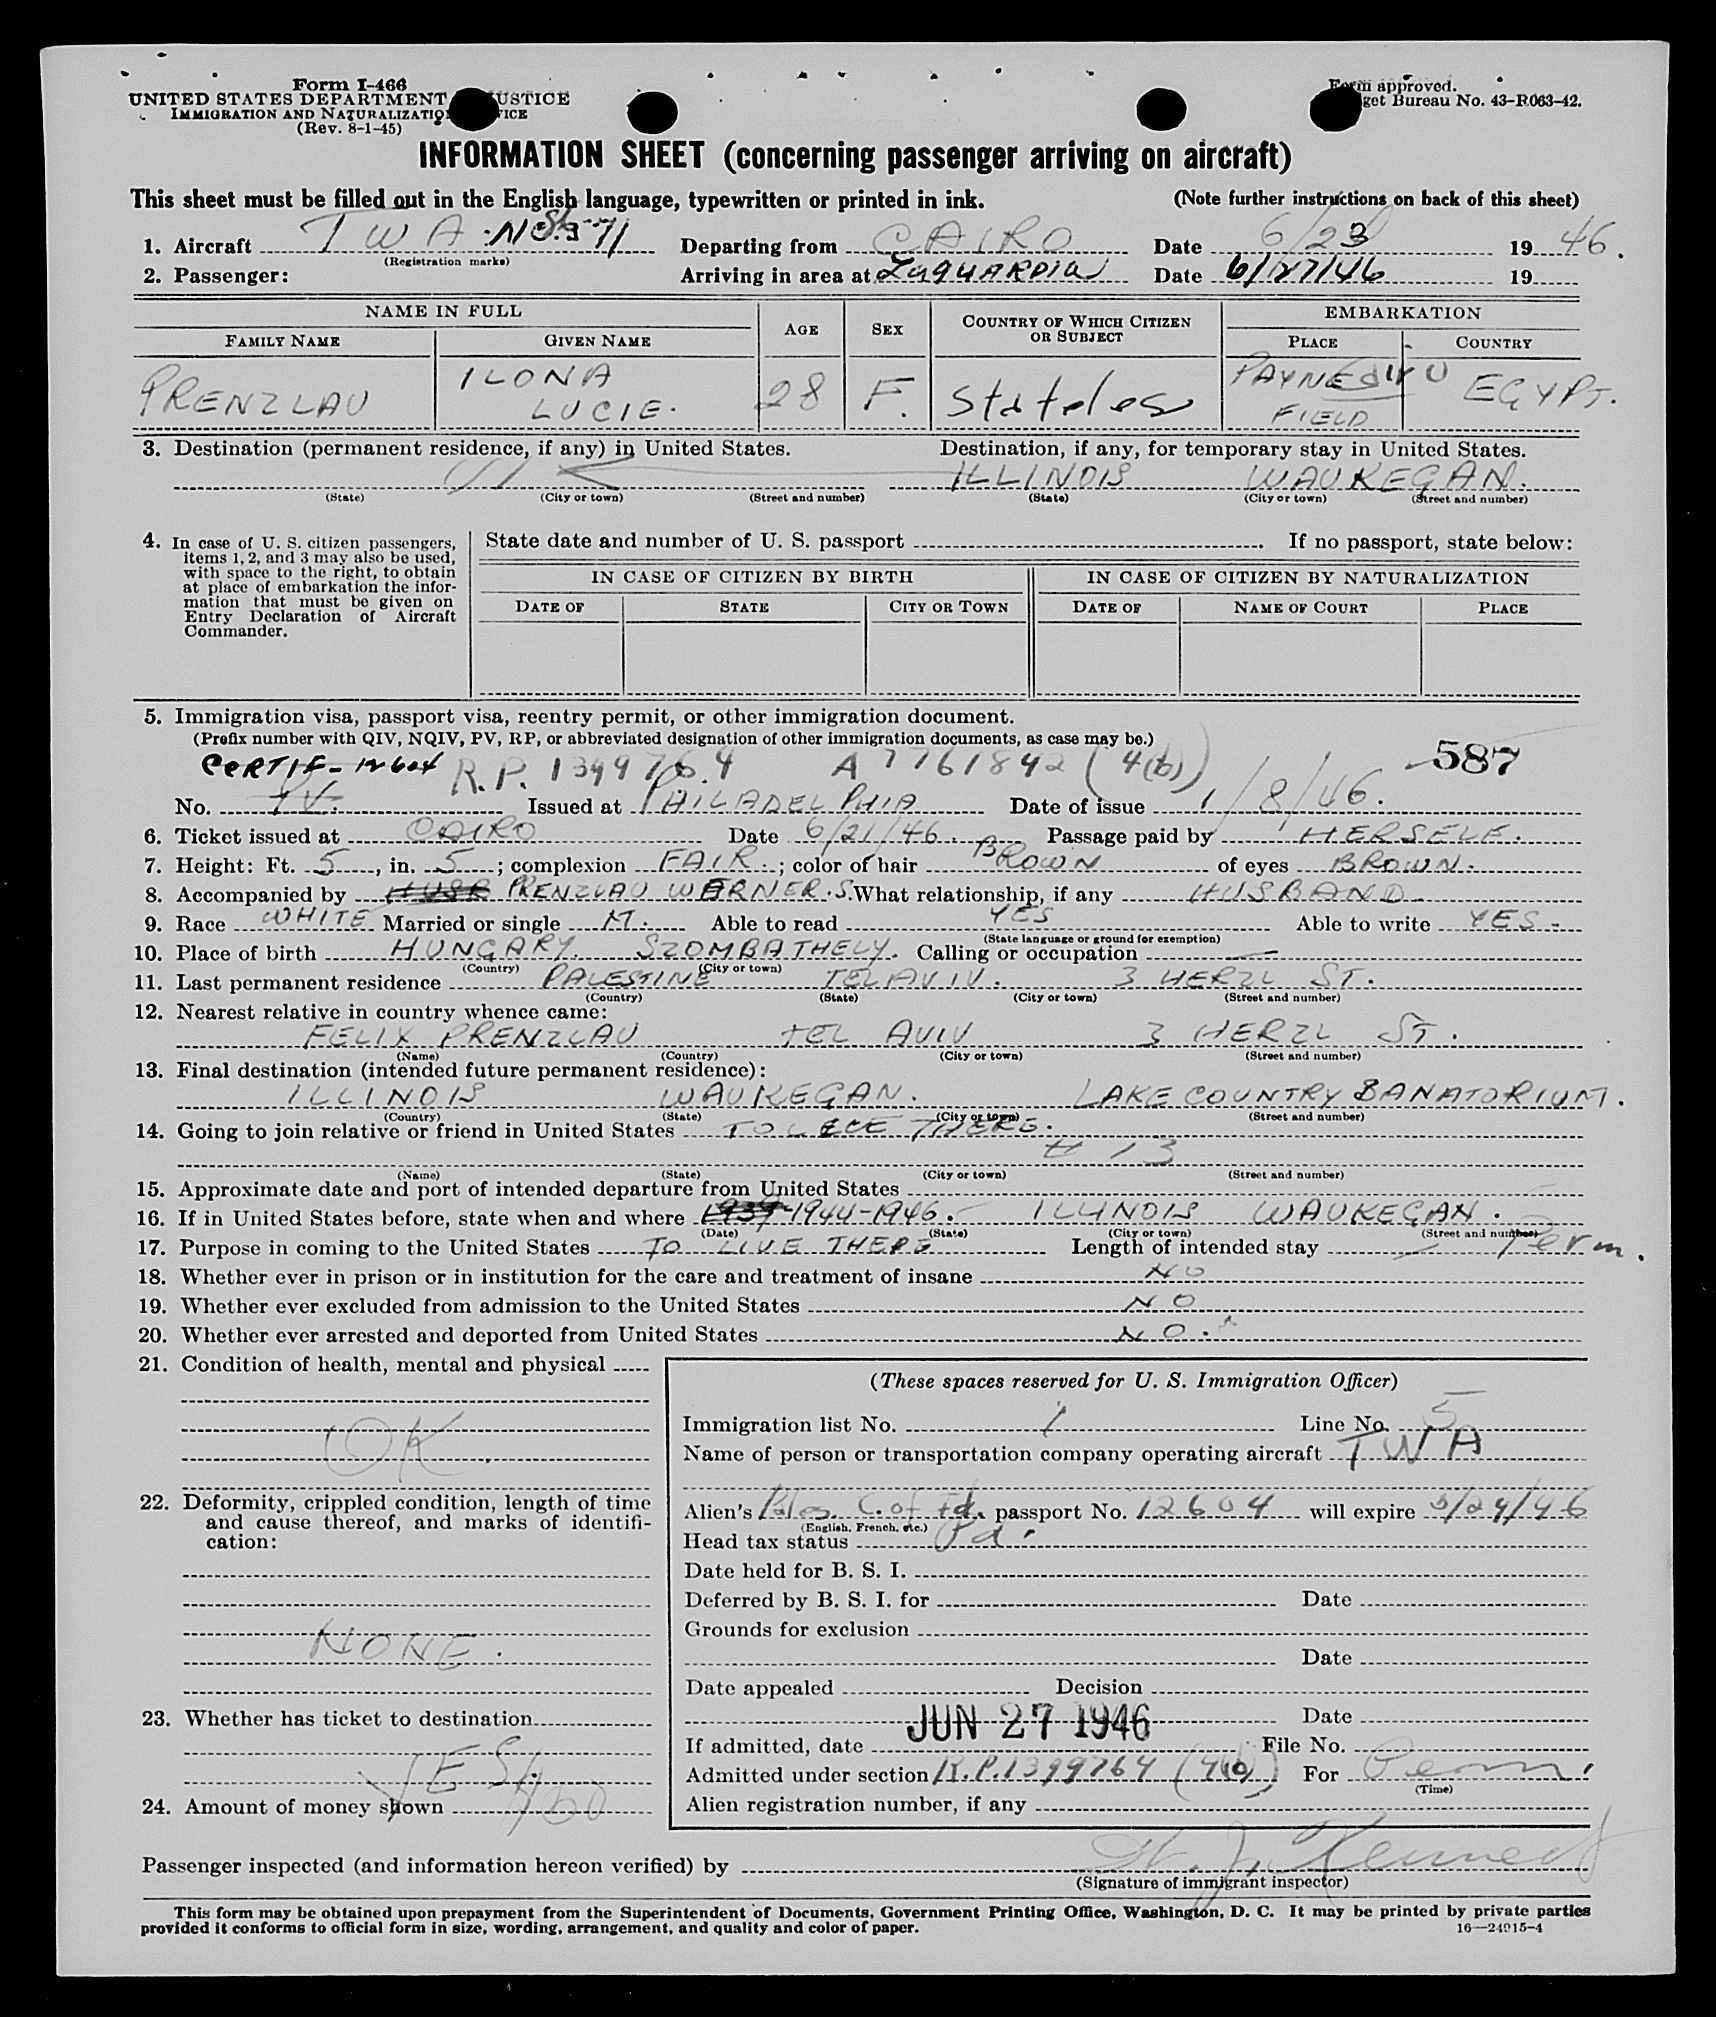 Form I-466
UNITED STATES DEPARTMENT JUSTICE
IMMIGRATION AND NATURALIZATION SERVICE
(Rev. 8-1-45)
Form approved.
Budget Bureau No. 43-R063-42.
INFORMATION SHEET (concerning passenger arriving on aircraft)
This sheet must be filled out in the English language, typewritten or printed in ink. (Note further instructions on back of this sheet)
1. Aircraft TWA Departing from CAIRO Date 6/23 1946.
(Registration marks)
2. Passenger: Arriving in area at LaGUARDIA Date 6/27/46 19
NAME IN FULL AGE SEX COUNTRY OF WHICH CITIZEN OR SUBJECT EMBARKATION
FAMILY NAME GIVEN NAME PLACE COUNTRY
PRENZLAU ILONA LUCIE. 28 F. Stateles PAYNE FIELD EGYPT.
3. Destination (permanent residence, if any) in United States. Destination, if any, for temporary stay in United States.
ILLINOIS WAUKEGAN.
(State) (City or town) (Street and number) (State) (City or town) (Street and number)
4. In case of U. S. citizen passengers, items 1, 2, and 3 may also be used, with space to the right, to obtain at place of embarkation the information that must be given on Entry Declaration of Aircraft Commander.
State date and number of U. S. passport . If no passport, state below:
IN CASE OF CITIZEN BY BIRTH IN CASE OF CITIZEN BY NATURALIZATION
DATE OF STATE CITY OR TOWN DATE OF NAME OF COURT PLACE
5. Immigration visa, passport visa, reentry permit, or other immigration document.
(Prefix number with QIV, NQIV, PV, RP, or abbreviated designation of other immigration documents, as case may be.)
CERTIF - 12604 R.P. 1399764 A 7761842 (4(b)) 587
No. Issued at PHILADELPHIA Date of issue 1/8/46.
6. Ticket issued at CAIRO Date 6/21/46. Passage paid by HERSELF.
7. Height: Ft. 5, in. 5; complexion FAIR.; color of hair BROWN of eyes BROWN.
8. Accompanied by PRENZLAU WERNER.S. What relationship, if any HUSBAND.
9. Race WHITE Married or single M. Able to read YES Able to write YES-
(State language or ground for exemption)
10. Place of birth HUNGARY. SZOMBATHELY. Calling or occupation —
(Country) (City or town)
11. Last permanent residence PALESTINE TEL AVIV. 3 HERZL ST.
(Country) (State) (City or town) (Street and number)
12. Nearest relative in country whence came:
FELIX PRENZLAU TEL AVIV 3 HERZL ST.
(Name) (Country) (City or town) (Street and number)
13. Final destination (intended future permanent residence):
ILLINOIS WAUKEGAN. LAKE COUNTRY SANATORIUM.
(Country) (State) (City or town) (Street and number)
14. Going to join relative or friend in United States THERE.
# 13
(Name) (State) (City or town) (Street and number)
15. Approximate date and port of intended departure from United States
16. If in United States before, state when and where 1939-1944-1946. ILLINOIS WAUKEGAN.
(Date) (State) (City or town) (Street and number)
17. Purpose in coming to the United States TO LIVE THERE Length of intended stay — Perm.
18. Whether ever in prison or in institution for the care and treatment of insane NO
19. Whether ever excluded from admission to the United States NO
20. Whether ever arrested and deported from United States NO.
21. Condition of health, mental and physical
OK
22. Deformity, crippled condition, length of time and cause thereof, and marks of identification:
NONE.
23. Whether has ticket to destination
YES.
24. Amount of money shown
(These spaces reserved for U. S. Immigration Officer)
Immigration list No. 1 Line No. 5
Name of person or transportation company operating aircraft TWA
Alien's C. of Id. passport No. 12604 will expire
(English, French, etc.)
Head tax status Pd.
Date held for B. S. I.
Deferred by B. S. I. for Date
Grounds for exclusion
Date
Date appealed Decision
Date
If admitted, date JUN 27 1946 File No.
Admitted under section R.P.1399764 (4(b)) For Perm.
(Time)
Alien registration number, if any
Passenger inspected (and information hereon verified) by
(Signature of immigrant inspector)
This form may be obtained upon prepayment from the Superintendent of Documents, Government Printing Office, Washington, D. C. It may be printed by private parties
provided it conforms to official form in size, wording, arrangement, and quality and color of paper. 16—24915-4